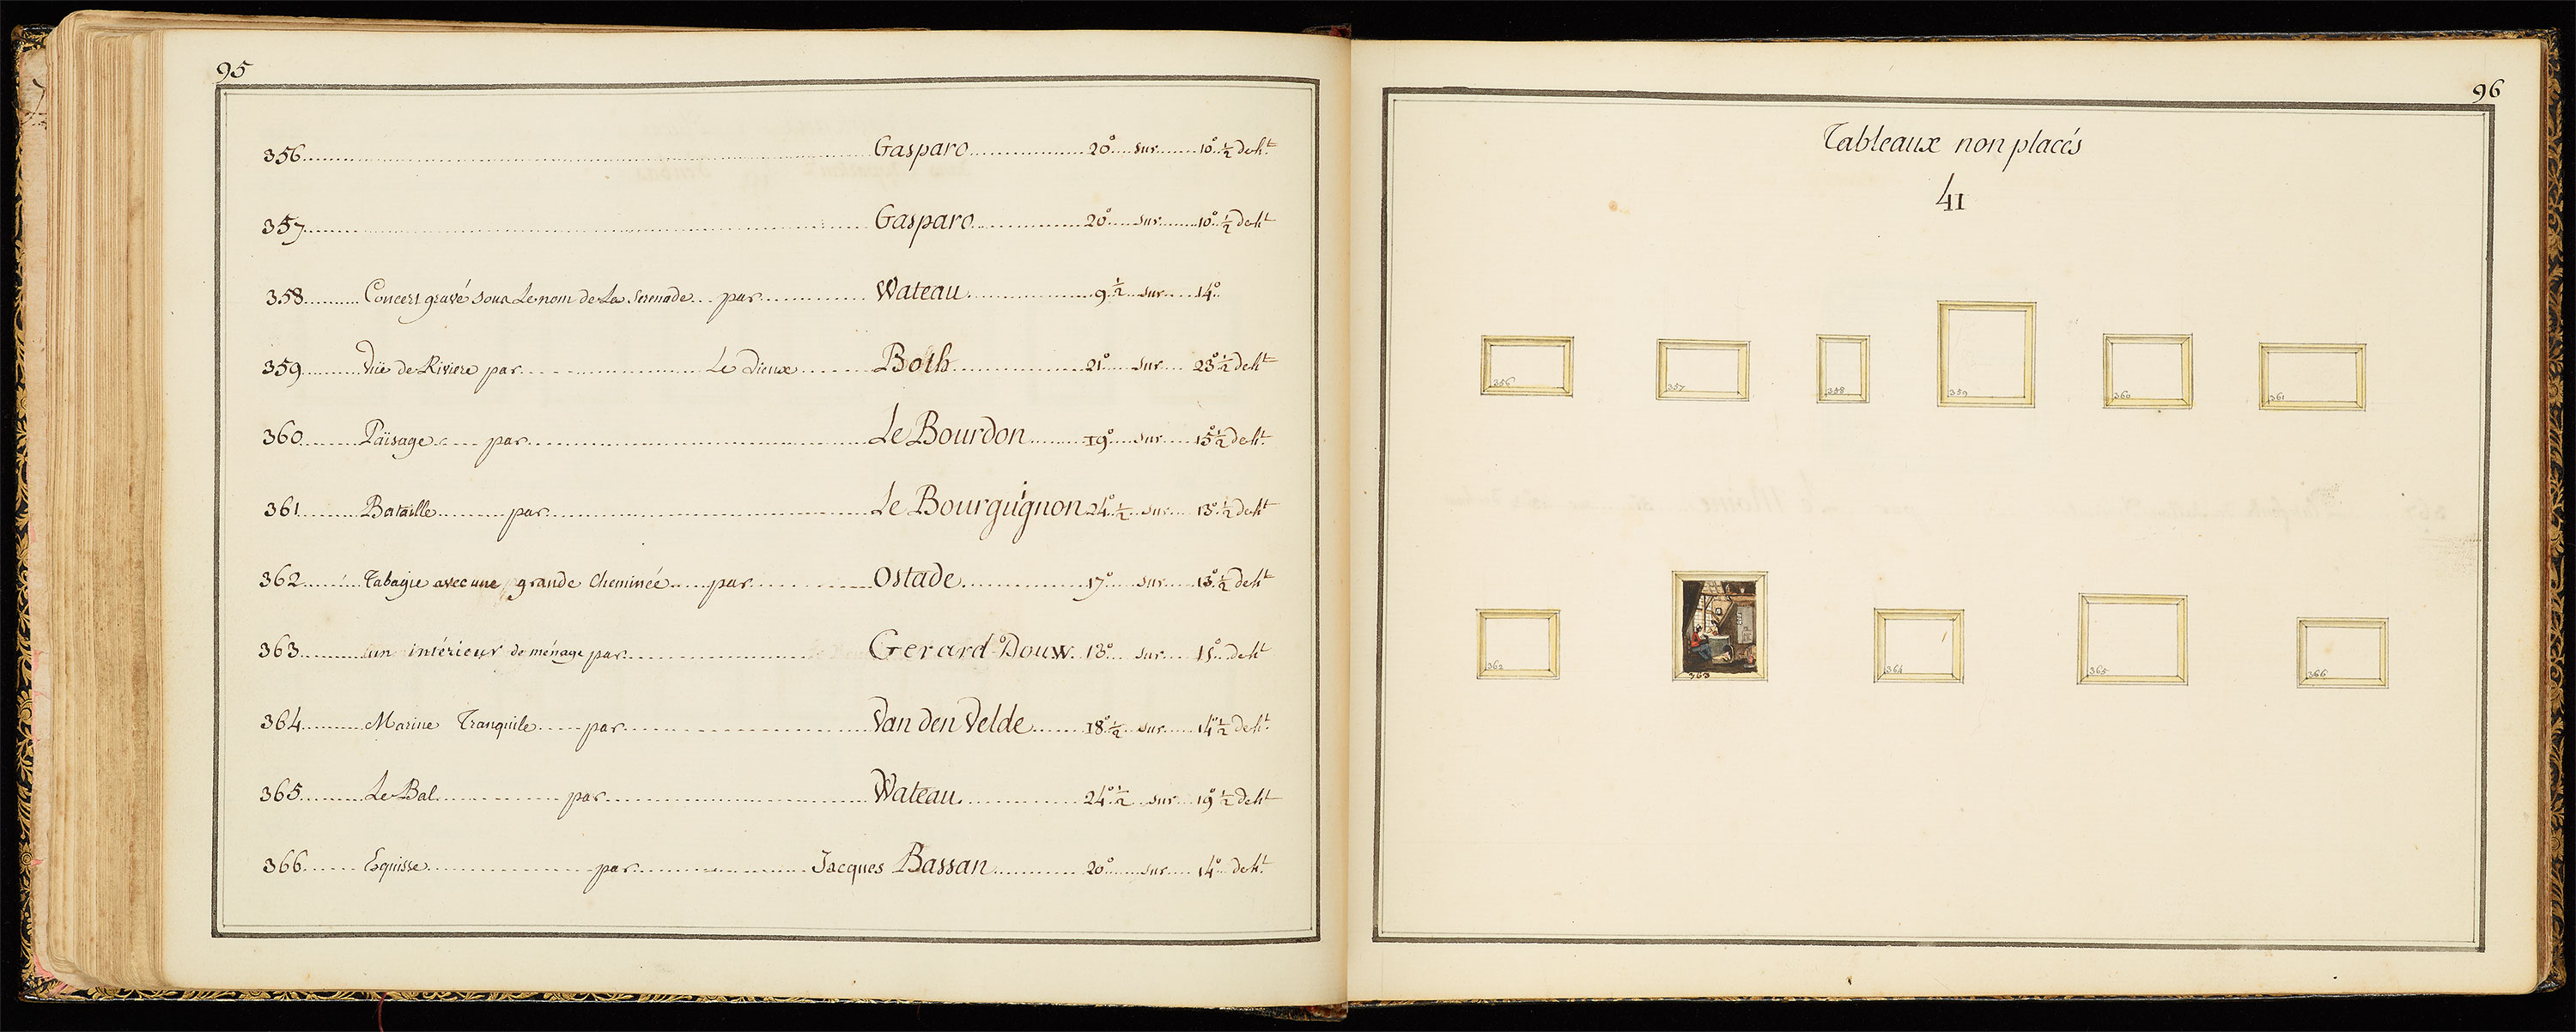 95
356 Gasparo 20° sur 10° ½ de ht
357 Gasparo 20° sur 10° ½ de ht
358 Concert gravé sous Le nom de La Serenade par Wateau 9 ½ sur 14°
359 Vüe de Riviere par Le Vieux Both 21° sur 23° ½ de ht
360 Païsage par Le Bourdon 19° sur 15° ½ de ht
361 Bataille par Le Bourguignon 24° ½ sur 13° ½ de ht
362 Tabagie avec une grande Cheminée par Ostade 17° sur 13° ½ de ht
363 un intérieur de ménage par Gerard Douw 13° sur 15° de ht
364 Marine Tranquile par Van den Velde 18° ½ sur 14° ½ de ht
365 Le Bal par Wateau 24° ½ sur 19° ½ de ht
366 Esquisse par Jacques Bassan 20° sur 14° de ht
96
Tableaux non placés
41
356 357 358 359 360 361
362 363 364 365 366